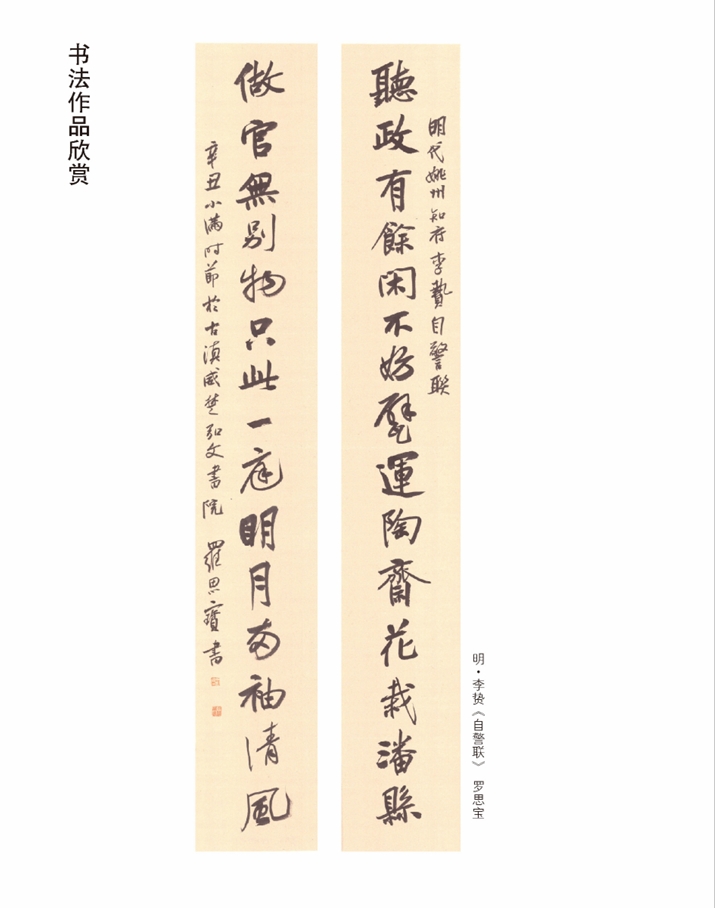 书法作品欣赏
明代姚州知府李贄自警联
聽政有餘闲不妨甓運陶齋花栽潘縣
做官無别物只此一庭明月两袖清風
辛丑小满时節於古滇威楚弘文書院 羅思寶書
明·李贽《自警联》 罗思宝